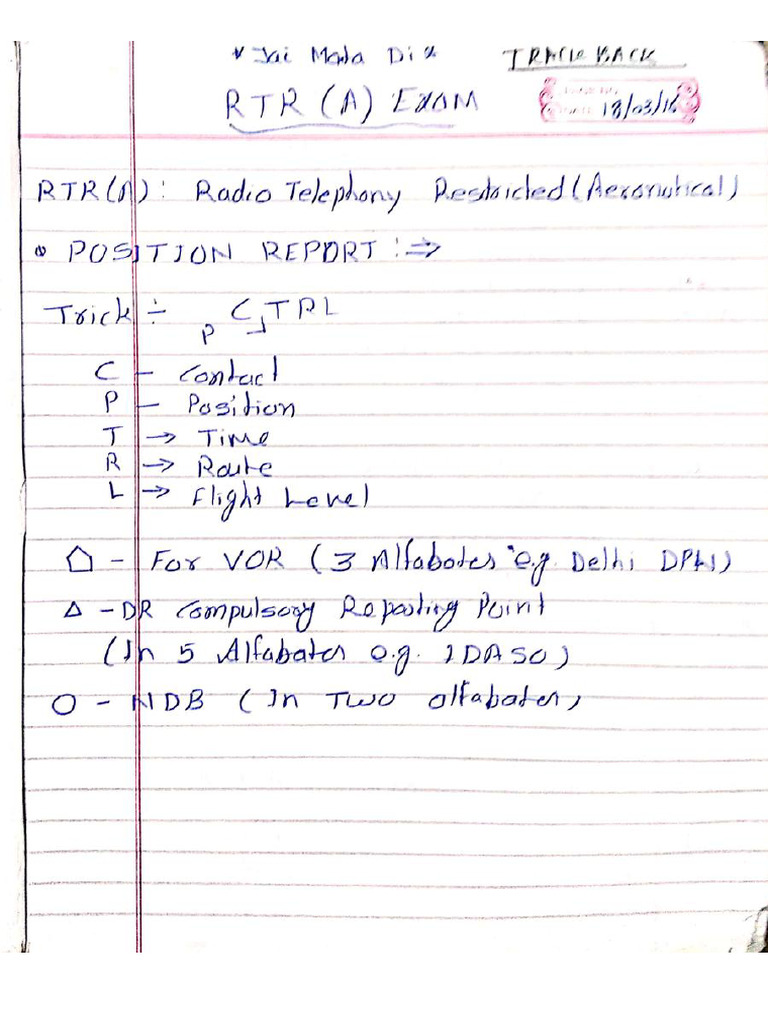 * Jai Mata Di *
TRACK BACK
RTR (A) EXAM
18/03/16
RTR(A): Radio Telephony Restricted (Aeronutical)
• POSITION REPORT :⇒
Trick ÷ P C, TRL
C – Contact
P – Position
T → Time
R → Route
L → Flight Level
⌂ – For VOR (3 Alfabates e.g. Delhi DPN)
△ – DR Compulsory Reporting Point
(In 5 Alfabates e.g. IDASO)
○ – NDB (In Two alfabates)